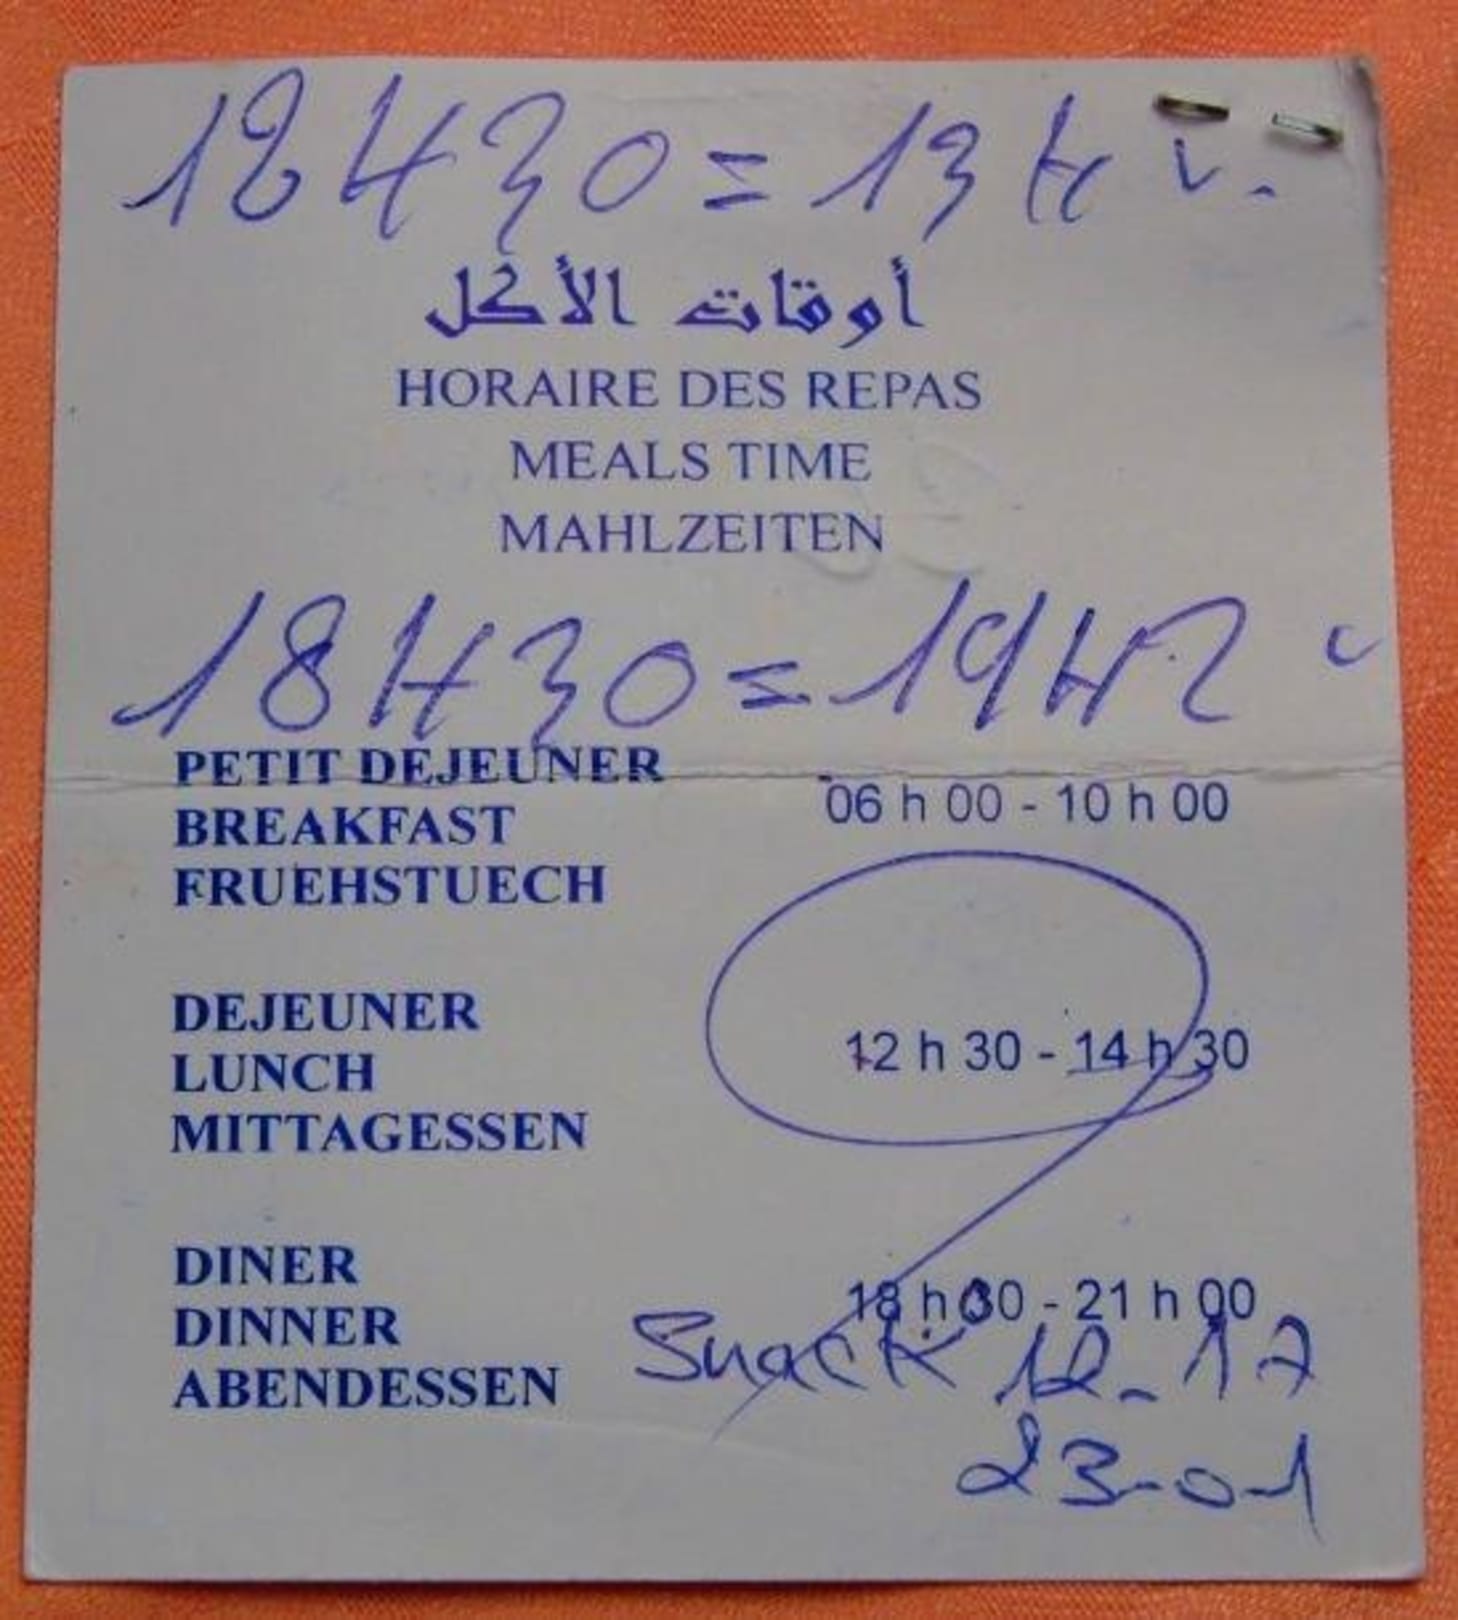 12H30 = 13H
أوقات الأكل
HORAIRE DES REPAS
MEALS TIME
MAHLZEITEN
18H30 = 19H
PETIT DEJEUNER
06 h 00 - 10 h 00
BREAKFAST
FRUEHSTUECH
DEJEUNER
12 h 30 - 14 h 30
LUNCH
MITTAGESSEN
DINER
18 h 30 - 21 h 00
DINNER
Snack 12-17
ABENDESSEN
23-01